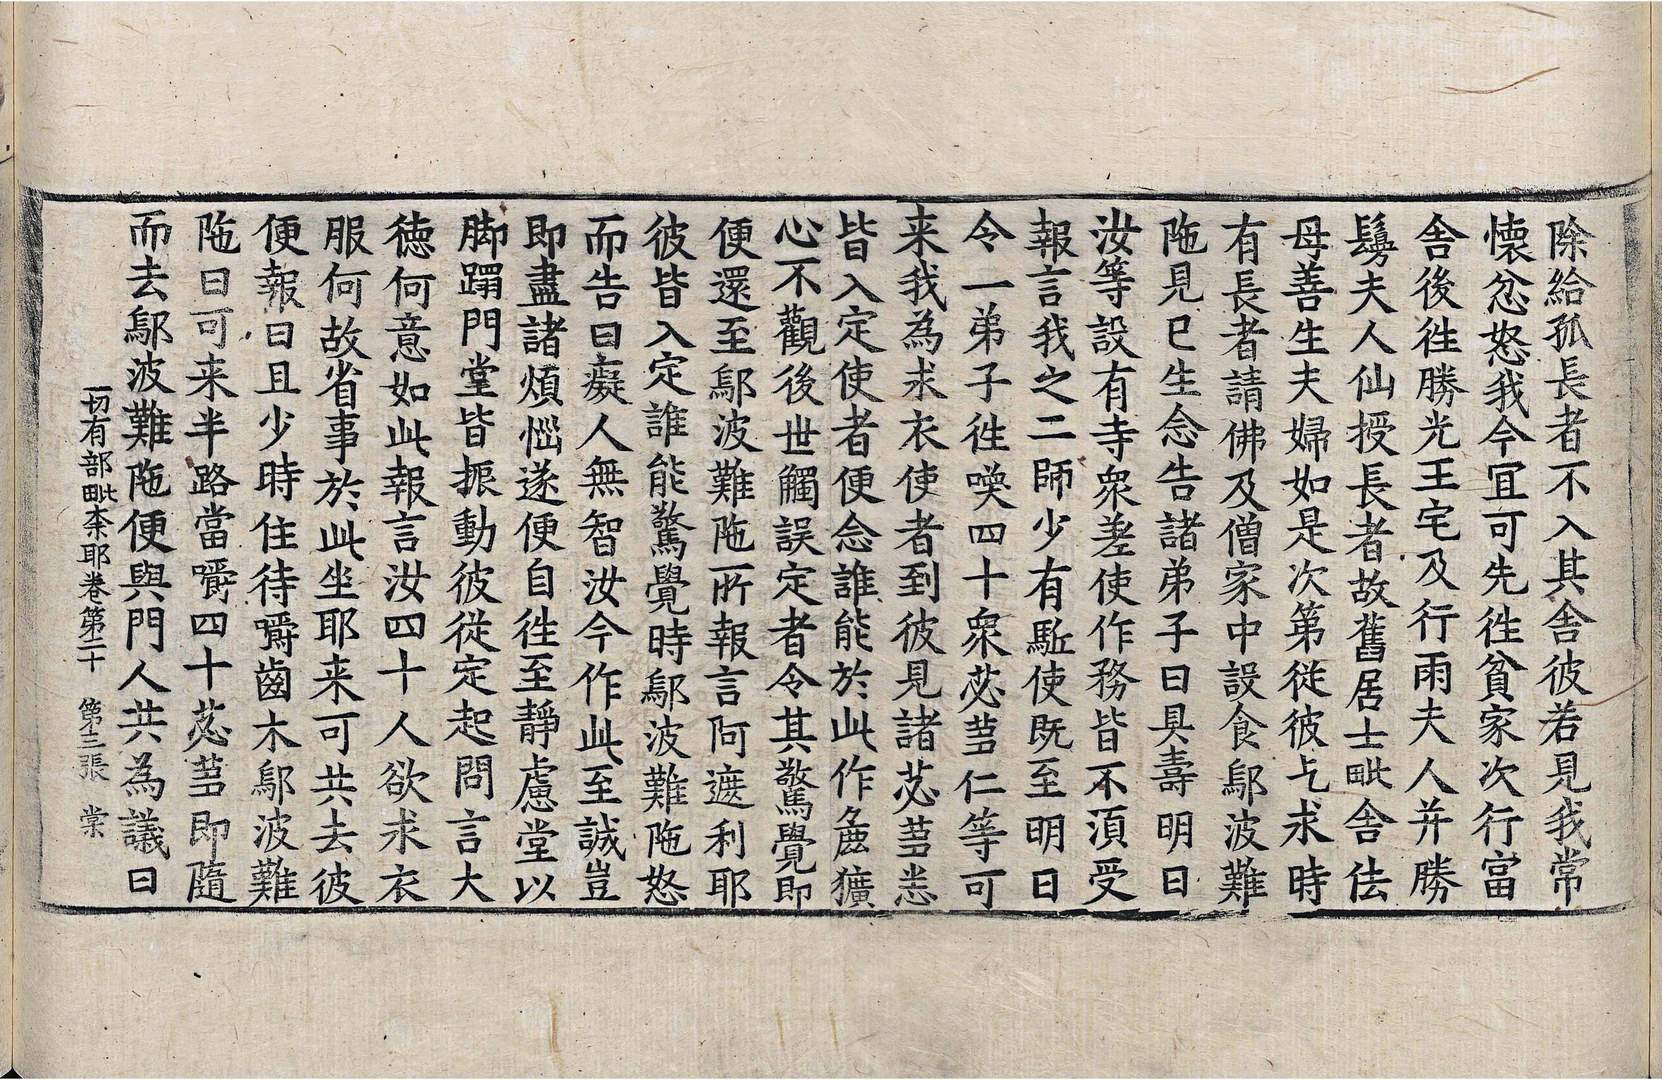 除給孤長者不入其舍彼若見我常
懷忿怒我今冝可先徃貧家次行富
舍後徃勝光王宅及行雨夫人并勝
鬘夫人仙授長者故舊居士毗舍佉
母善生夫婦如是次第従彼乞求時
有長者請佛及僧家中設食鄔波難
陁見已生念告諸弟子曰具壽明日
汝等設有寺衆差使作務皆不湏受
報言我之二師少有駈使旣至明日
令一弟子徃喚四十衆苾蒭仁等可
来我為求衣使者到彼見諸苾蒭悉
皆入定使者便念誰能於此作麁獷
心不觀後世觸誤定者令其驚覺即
便還至鄔波難陁所報言阿遮利耶
彼皆入定誰能驚覺時鄔波難陁怒
而告曰癡人無智汝今作此至誠豈
即盡諸煩惱遂便自徃至靜慮堂以
脚躢門堂皆振動彼従定起問言大
徳何意如此報言汝四十人欲求衣
服何故省事於此坐耶来可共去彼
便報曰且少時住待嚼齒木鄔波難
陁曰可来半路當嚼四十苾蒭即隨
而去鄔波難陁便與門人共為議曰
一切有部毗柰耶卷第二十　第三張　棠